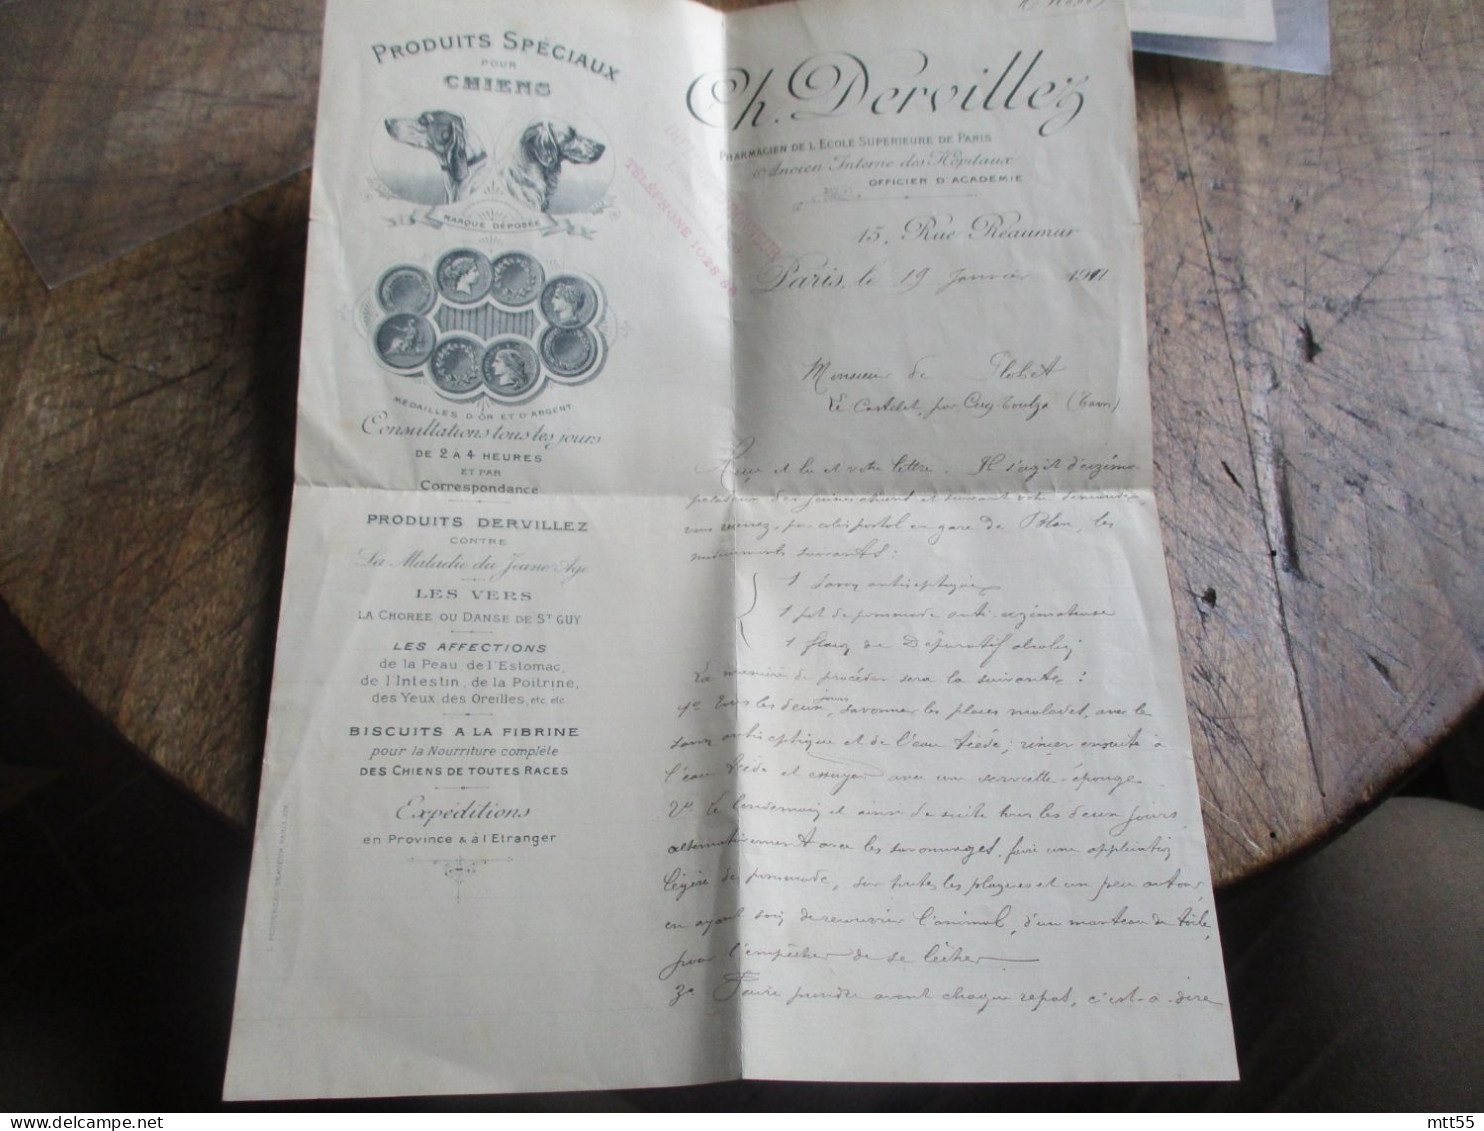 PRODUITS SPÉCIAUX
POUR
CHIENS
MARQUE DÉPOSÉE
MÉDAILLES D'OR ET D'ARGENT
Consultations tous les jours
DE 2 A 4 HEURES
ET PAR
Correspondance
PRODUITS DERVILLEZ
CONTRE
La Maladie du Jeune Age
LES VERS
LA CHORÉE OU DANSE DE ST GUY
LES AFFECTIONS
de la Peau, de l'Estomac,
de l'Intestin, de la Poitrine,
des Yeux, des Oreilles, etc. etc.
BISCUITS A LA FIBRINE
pour la Nourriture complète
DES CHIENS DE TOUTES RACES
Expéditions
en Province & à l'Etranger
Ch. Dervillez
PHARMACIEN DE L'ECOLE SUPÉRIEURE DE PARIS
Ancien Interne des Hôpitaux
OFFICIER D'ACADÉMIE
TÉLÉPHONE 1028.88
15, Rue Réaumur
Paris, le 19 Janvier 1911
Monsieur de
Le Castelet, par Cuq-Toulza (Tarn)
Reçu et lu et votre lettre. Il s'agit d'eczéma
et suivant votre demande,
vous recevrez, par colis postal en gare de Blan, les
médicaments suivants :
1 savon antiseptique
1 pot de pommade anti-eczémateuse
1 flacon de Dépuratif
La manière de procéder sera la suivante :
1° Tous les deux jours, savonner les places malades, avec le
savon antiseptique et de l'eau tiède ; rincer ensuite à
l'eau tiède et essuyer avec une serviette-éponge.
2° Le lendemain et ainsi de suite tous les deux jours,
alternativement avec les savonnages, faire une application
légère de pommade, sur toutes les plaques et un peu autour,
en ayant soin de recouvrir l'animal, d'un manteau de toile,
pour l'empêcher de se lécher
3° Faire prendre avant chaque repas, c'est-à-dire
mtt55